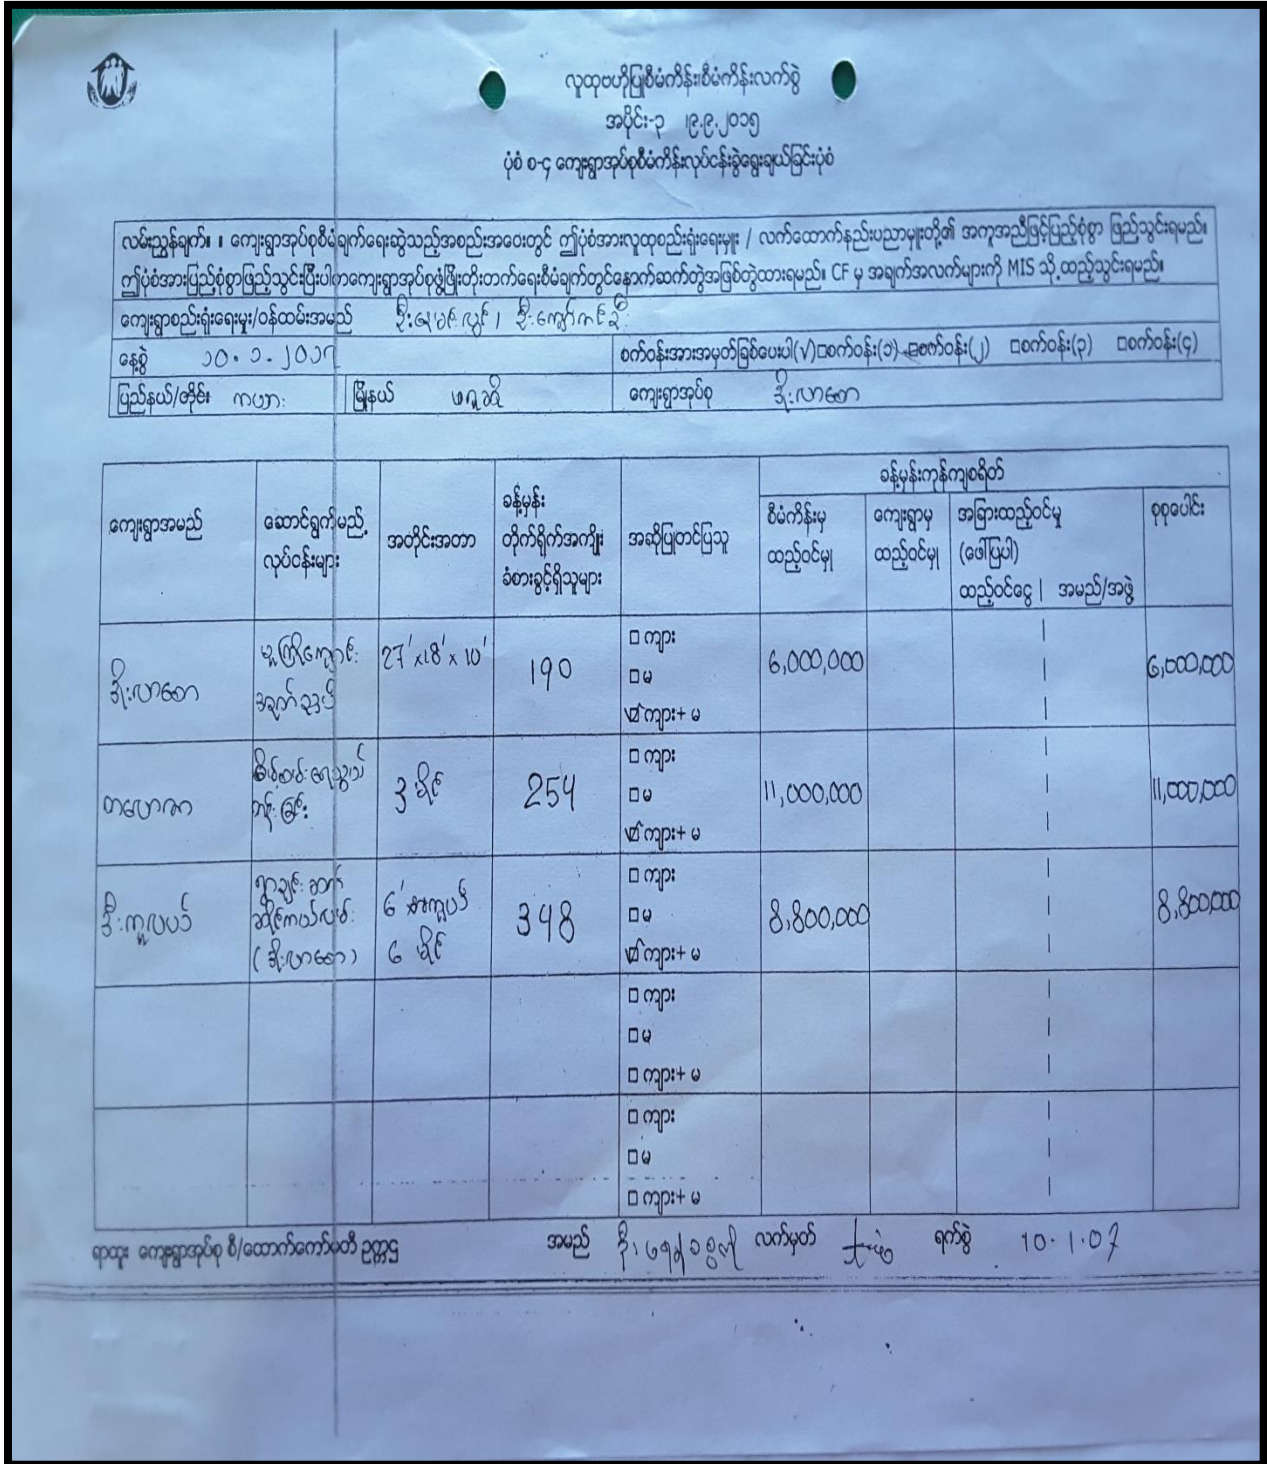 လူထုဗဟိုပြုစီမံကိန်း၊စီမံကိန်းလက်စွဲ
အပိုင်း-၃ ၊၉.၉.၂၀၁၅
ပုံစံ စ-၄ ကျေးရွာအုပ်စုစီမံကိန်းလုပ်ငန်းခွဲရွေးချယ်ခြင်းပုံစံ
လမ်းညွှန်ချက်။ ။ ကျေးရွာအုပ်စုစီမံချက်ရေးဆွဲသည့်အစည်းအဝေးတွင် ဤပုံစံအားလူထုစည်းရုံးရေးမှူး / လက်ထောက်နည်းပညာမှူးတို့၏ အကူအညီဖြင့်ပြည့်စုံစွာ ဖြည့်သွင်းရမည်။
ဤပုံစံအားပြည့်စုံစွာဖြည့်သွင်းပြီးပါကကျေးရွာအုပ်စုဖွံ့ဖြိုးတိုးတက်ရေးစီမံချက်တွင်နောက်ဆက်တွဲအဖြစ်တွဲထားရမည်။ CF မှ အချက်အလက်များကို MIS သို့ ထည့်သွင်းရမည်။
ကျေးရွာစည်းရုံးရေးမှူး/ဝန်ထမ်းအမည်
နေ့စွဲ ၁၀.၁.၂၀၁၇ စက်ဝန်းအားအမှတ်ခြစ်ပေးပါ(√)□စက်ဝန်း(၁) □စက်ဝန်း(၂) □စက်ဝန်း(၃) □စက်ဝန်း(၄)
ပြည်နယ်/တိုင်း ကယား မြို့နယ် ဖရူဆို ကျေးရွာအုပ်စု ဒိုးလာစော
ခန့်မှန်းကုန်ကျစရိတ်
ကျေးရွာအမည် ဆောင်ရွက်မည့် လုပ်ငန်းများ အတိုင်းအတာ ခန့်မှန်း တိုက်ရိုက်အကျိုး ခံစားခွင့်ရှိသူများ အဆိုပြုတင်ပြသူ စီမံကိန်းမှ ထည့်ဝင်မှု ကျေးရွာမှ ထည့်ဝင်မှု အခြားထည့်ဝင်မှု (ဖော်ပြပါ) ထည့်ဝင်ငွေ | အမည်/အဖွဲ့ စုစုပေါင်း
ဒိုးလာစော မူကြိုကျောင်း 27' x 18' x 10' 190 □ ကျား □ မ ☑ ကျား+ မ 6,000,000 6,000,000
3 မိုင် 254 □ ကျား □ မ ☑ ကျား+ မ 11,000,000 11,000,000
(ဒိုးလာစော) 6' 6 မိုင် 348 □ ကျား □ မ ☑ ကျား+ မ 8,800,000 8,800,000
□ ကျား
□ မ
□ ကျား+ မ
□ ကျား
□ မ
□ ကျား+ မ
ရာထူး ကျေးရွာအုပ်စု စီ/ထောက်ကော်မတီ ဥက္ကဋ္ဌ အမည် လက်မှတ် ရက်စွဲ 10.1.07